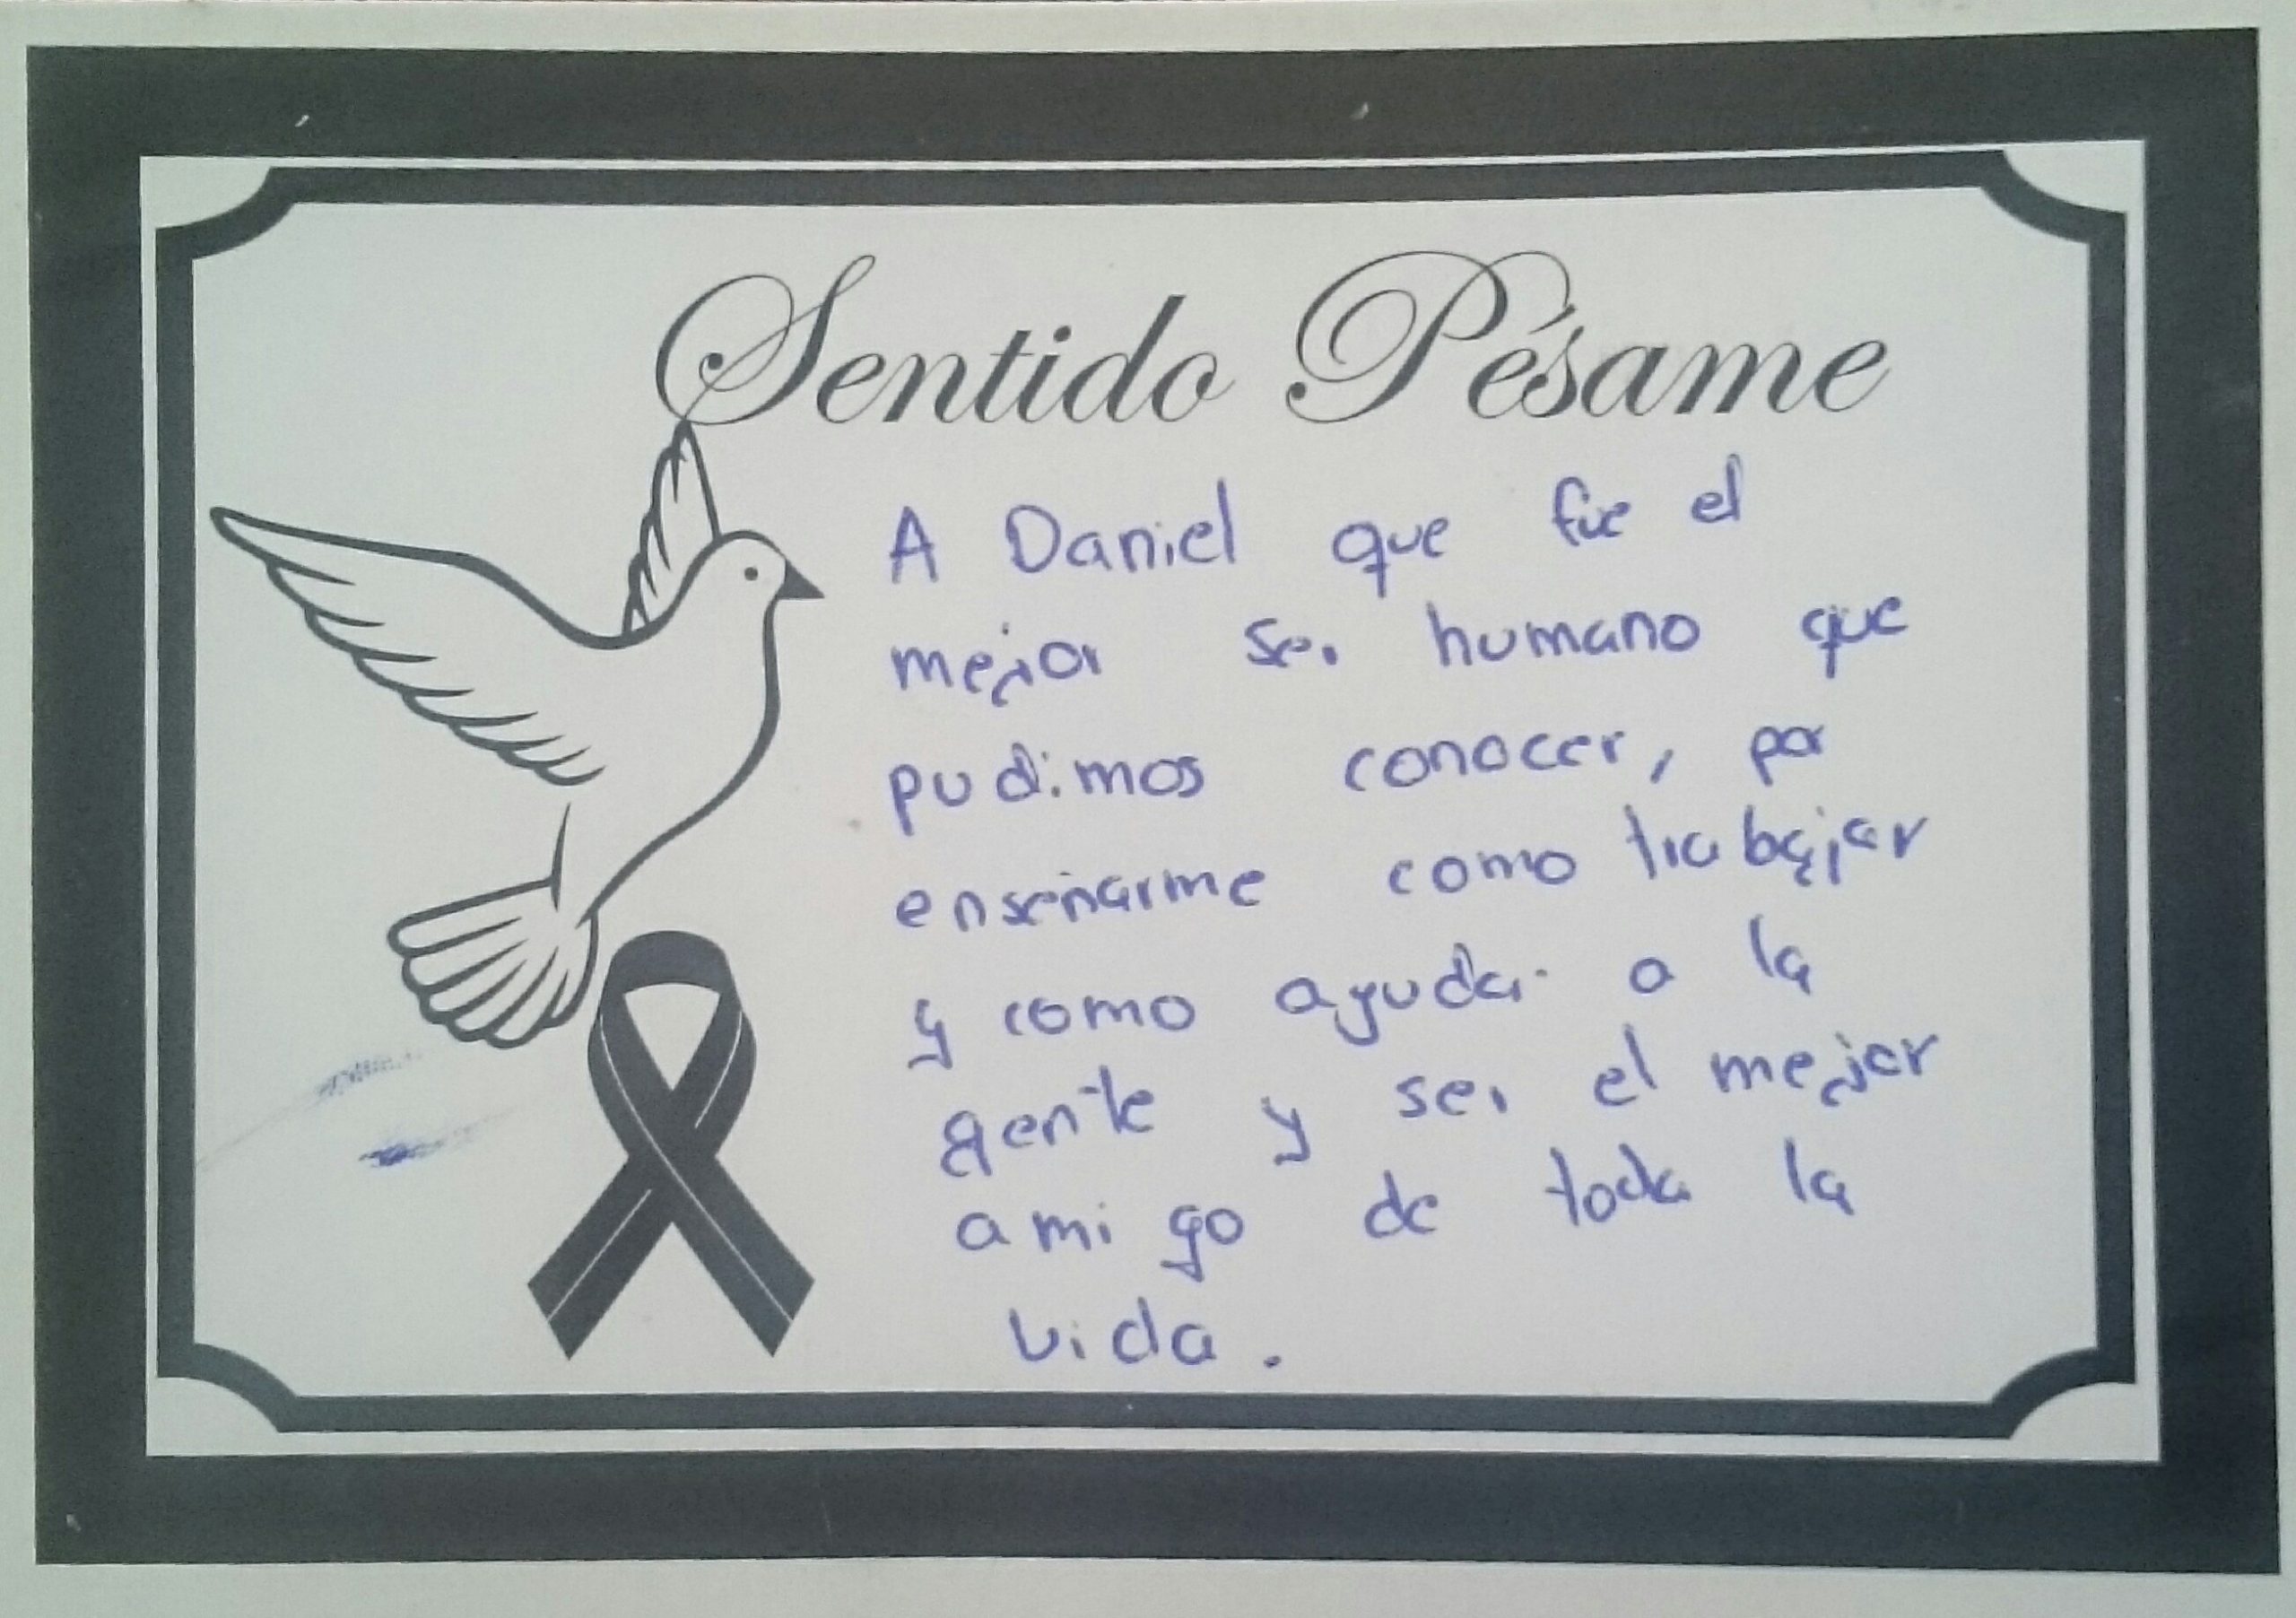 Sentido Pésame
A Daniel que fue el
mejor ser humano que
pudimos conocer, por
enseñarme como trabajar
y como ayudar a la
gente y ser el mejor
amigo de toda la
vida.